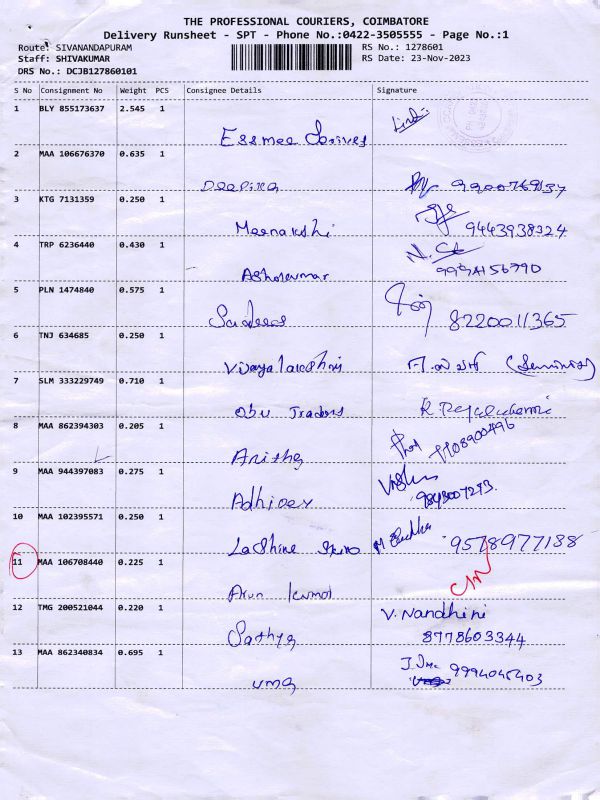 THE PROFESSIONAL COURIERS, COIMBATORE
Delivery Runsheet - SPT - Phone No.:0422-3505555 - Page No.:1
Route: SIVANANDAPURAM RS No.: 1278601
Staff: SHIVAKUMAR RS Date: 23-Nov-2023
DRS No.: DCJB127860101
S No Consignment No Weight PCS Consignee Details Signature
1 BLY 855173637 2.545 1
Essmee
2 MAA 106676370 0.635 1
Deepika
3 KTG 7131359 0.250 1
Meenakshi 9443938324
4 TRP 6236440 0.430 1
Ashokumar
5 PLN 1474840 0.575 1
8220011365
6 TNJ 634685 0.250 1
Vijayalakshmi
7 SLM 333229749 0.710 1
Traders
8 MAA 862394303 0.205 1
Anitha
9 MAA 944397083 0.275 1
9843007273
10 MAA 102395571 0.250 1
9578977188
11 MAA 106708440 0.225 1
Arun kumar
12 TMG 200521044 0.220 1 V. Nandhini
Sathya 8778603344
13 MAA 862340834 0.695 1
uma